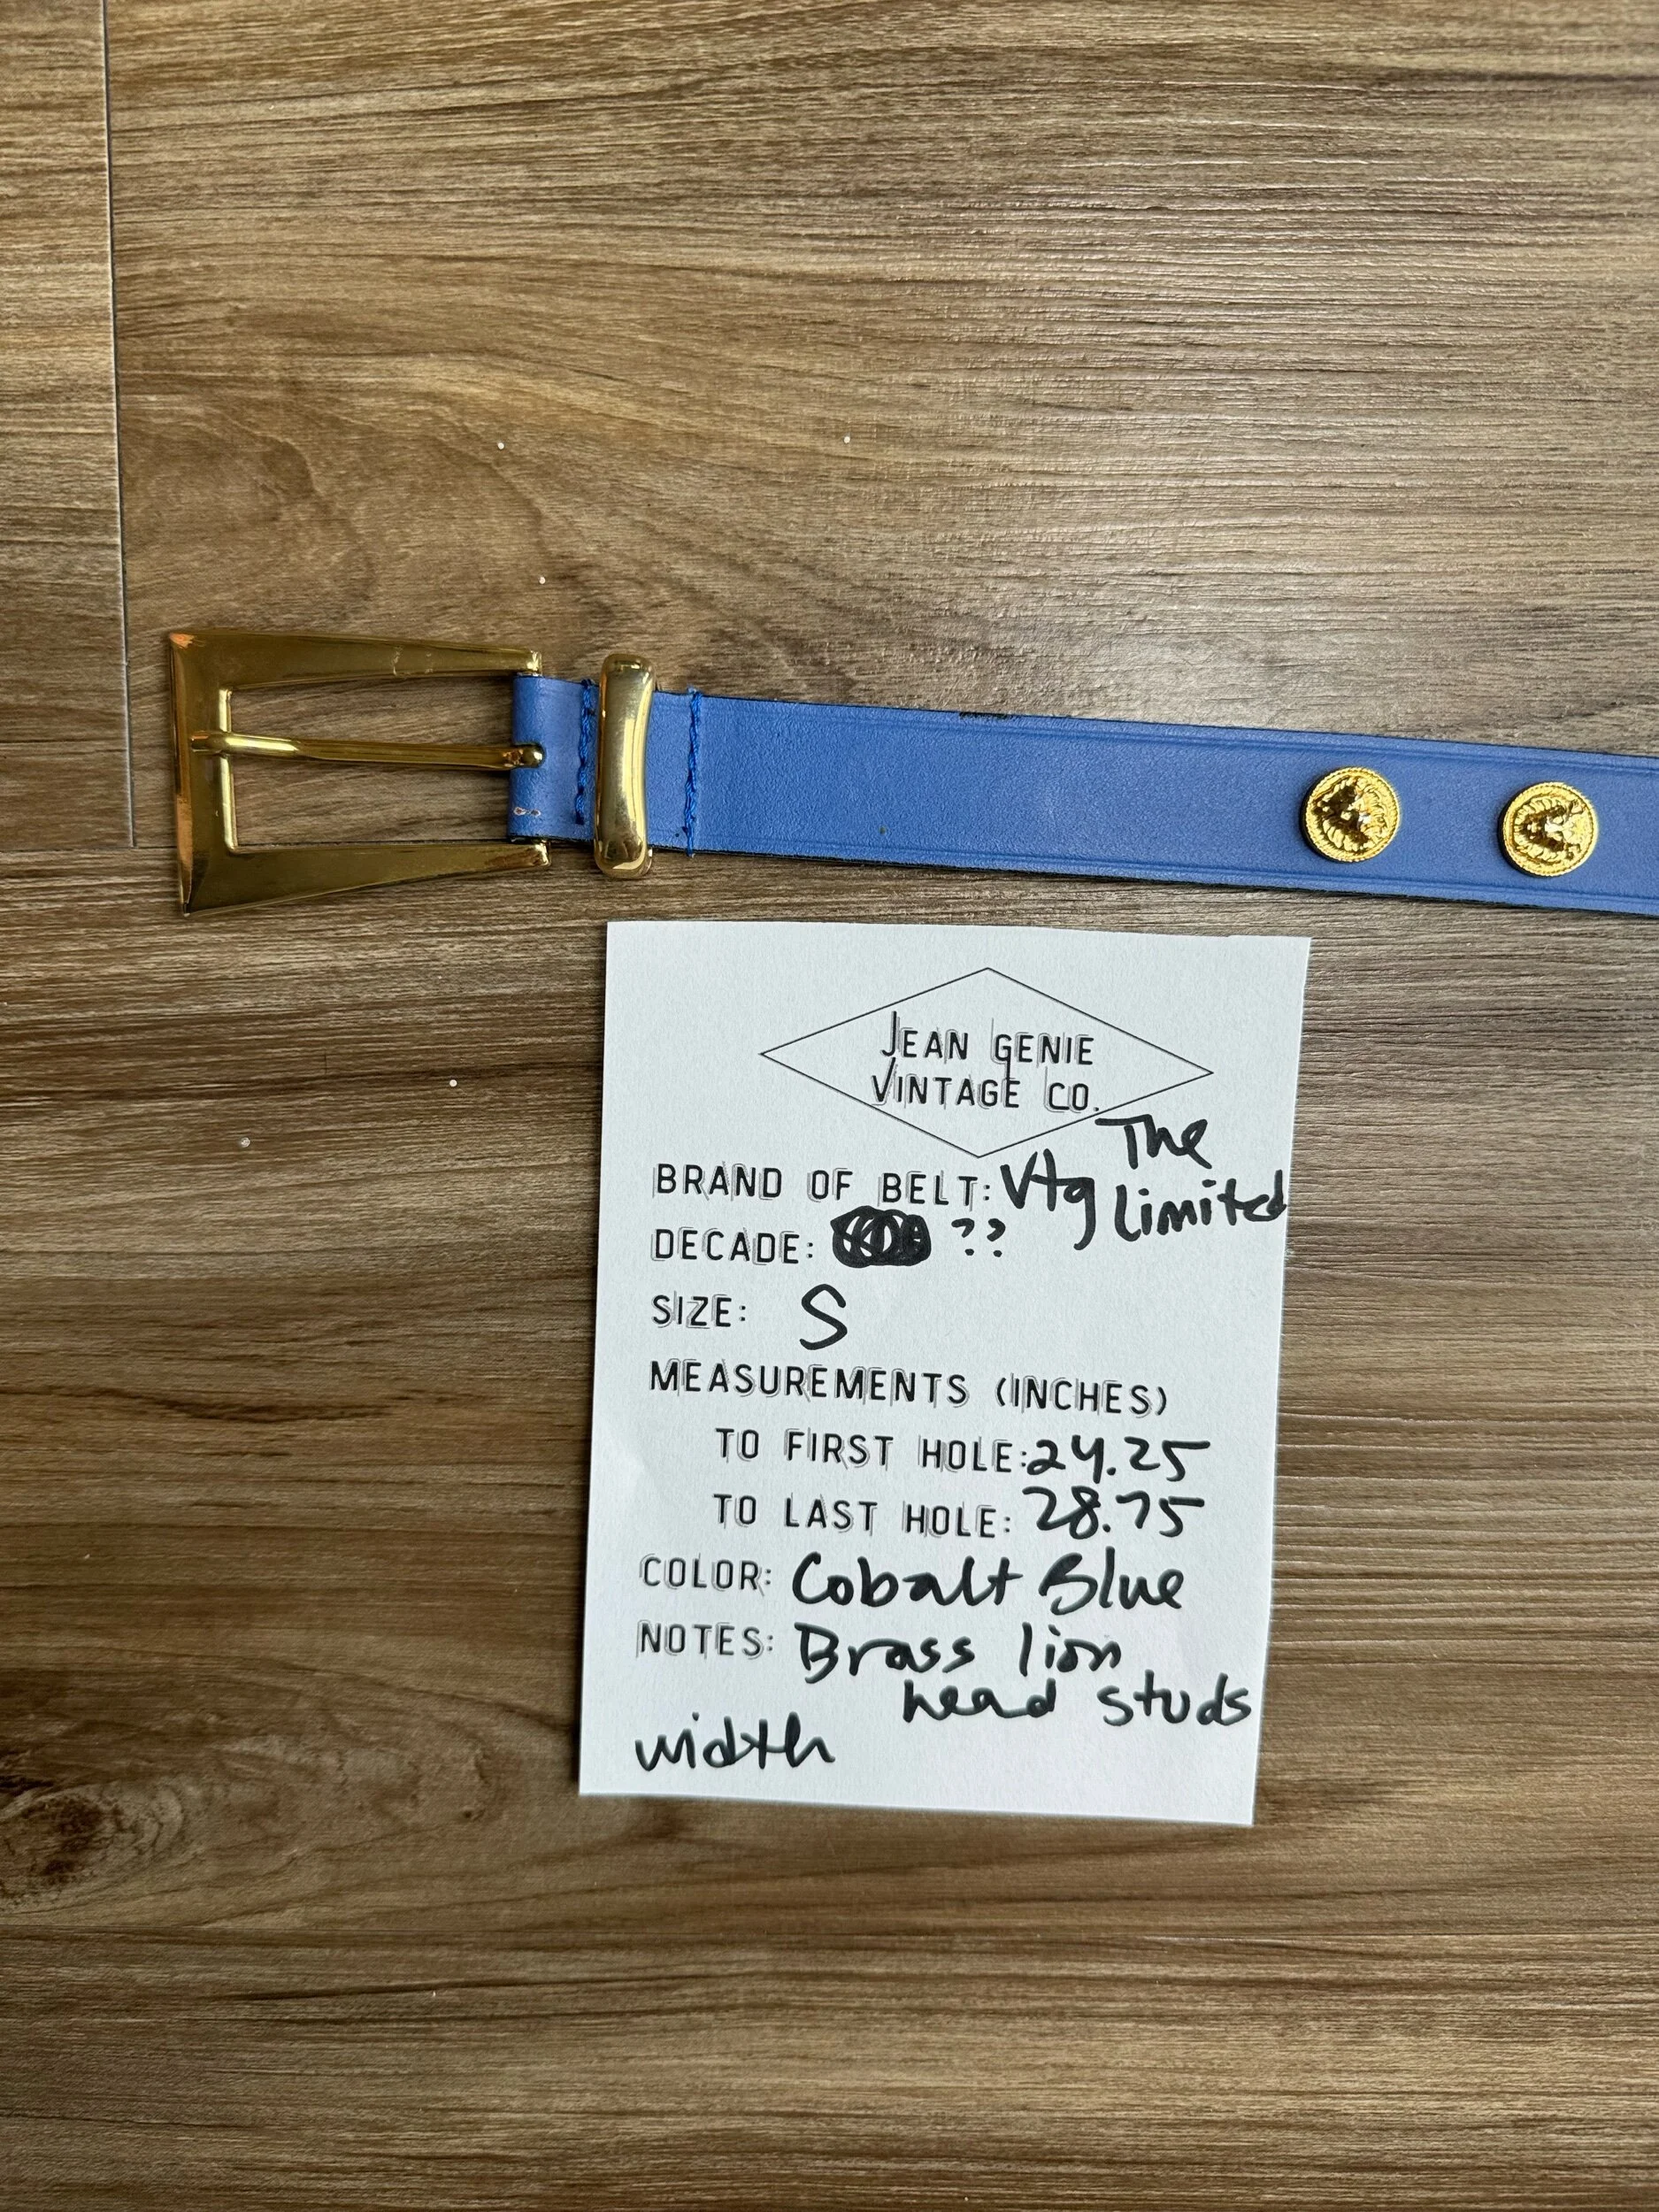 JEAN GENIE
VINTAGE CO.
BRAND OF BELT: Vtg The Limited
DECADE: ??
SIZE: S
MEASUREMENTS (INCHES)
TO FIRST HOLE: 24.25
TO LAST HOLE: 28.75
COLOR: Cobalt Blue
NOTES: Brass lion
head studs
width